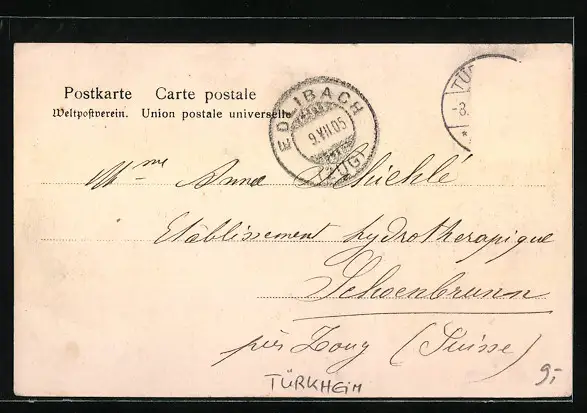 Postkarte Carte postale
Weltpostverein. Union postale universelle
EDLIBACH
9.VII.05
(ZUG)
TÜR
-8.
Mme Anna Schiehlé
Etablissement hydrotherapique
Schoenbrunn
près Zoug (Suisse)
TÜRKHEIM
9,-